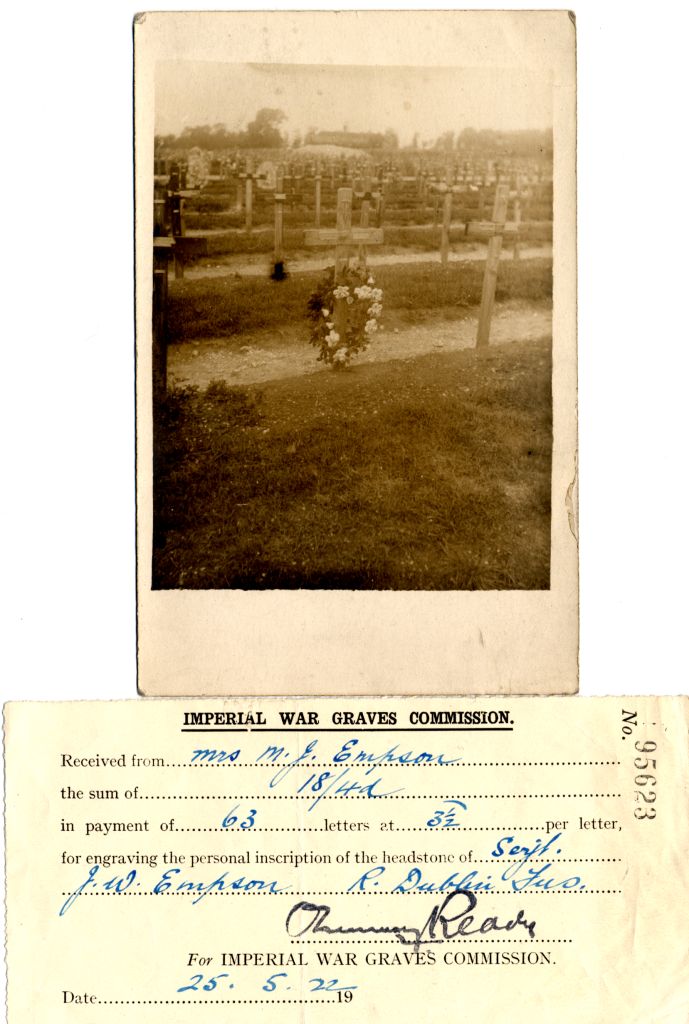 IMPERIAL WAR GRAVES COMMISSION.
No. 95623
Received from Mrs M. J. Empson
the sum of 18/4d
in payment of 63 letters at 3½ per letter,
for engraving the personal inscription of the headstone of Serjt.
J. W. Empson R. Dublin Fus.
Ready
For IMPERIAL WAR GRAVES COMMISSION.
Date 25. 5. 22 19